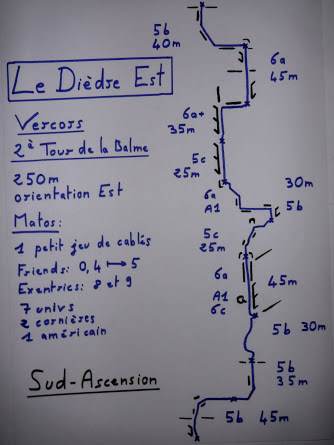 5b
40m
6a
45m
Le Dièdre Est
6a+
35m
Vercors
2è Tour de la Balme
5c
25m
250m
orientation Est
6a
A1
30m
5b
Matos:
1 petit jeu de cablés
Friends: 0,4 ↦ 5
Exentrics: 8 et 9
7 univs
2 cornières
1 américain
5c
25m
6a
45m
A1
6c
a
5b 30m
5b
35m
Sud-Ascension
5b 45m